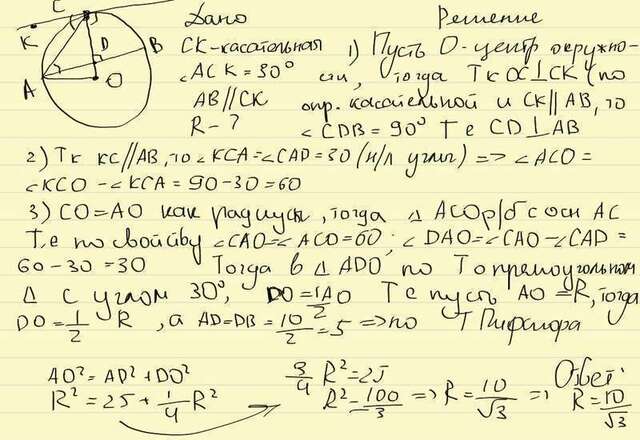 Дано Решение
СК-касательная
∠ACK=30°
AB//CK
R-?
1) Пусть О-центр окружно-
сти, тогда Тк ОС⊥СК (по
опр. касательной и СК//АВ, то
∠CDB=90° Те CD⊥AB
2) Тк КС//АВ, то ∠KCA=∠CAD=30 (н/л углы) => ∠ACO=
∠KCO-∠KCA=90-30=60
3) СО=АО как радиусы, тогда △ACO р/б с осн АС
Т.е по свойству ∠CAO=∠ACO=60; ∠DAO=∠CAO-∠CAD=
60-30=30 Тогда в △ADO по Т о прямоугольном
△ с углом 30°, DO=1/2 AO Те пусть АО=R, тогда
DO=1/2 R, а AD=DB=10/2=5 => по Т Пифагора
AO²=AD²+DO²
R²=25+1/4 R²
3/4 R²=25
R²=100/3 => R=10/√3 =>
Ответ:
R=10/√3
C
K
D
B
A
O